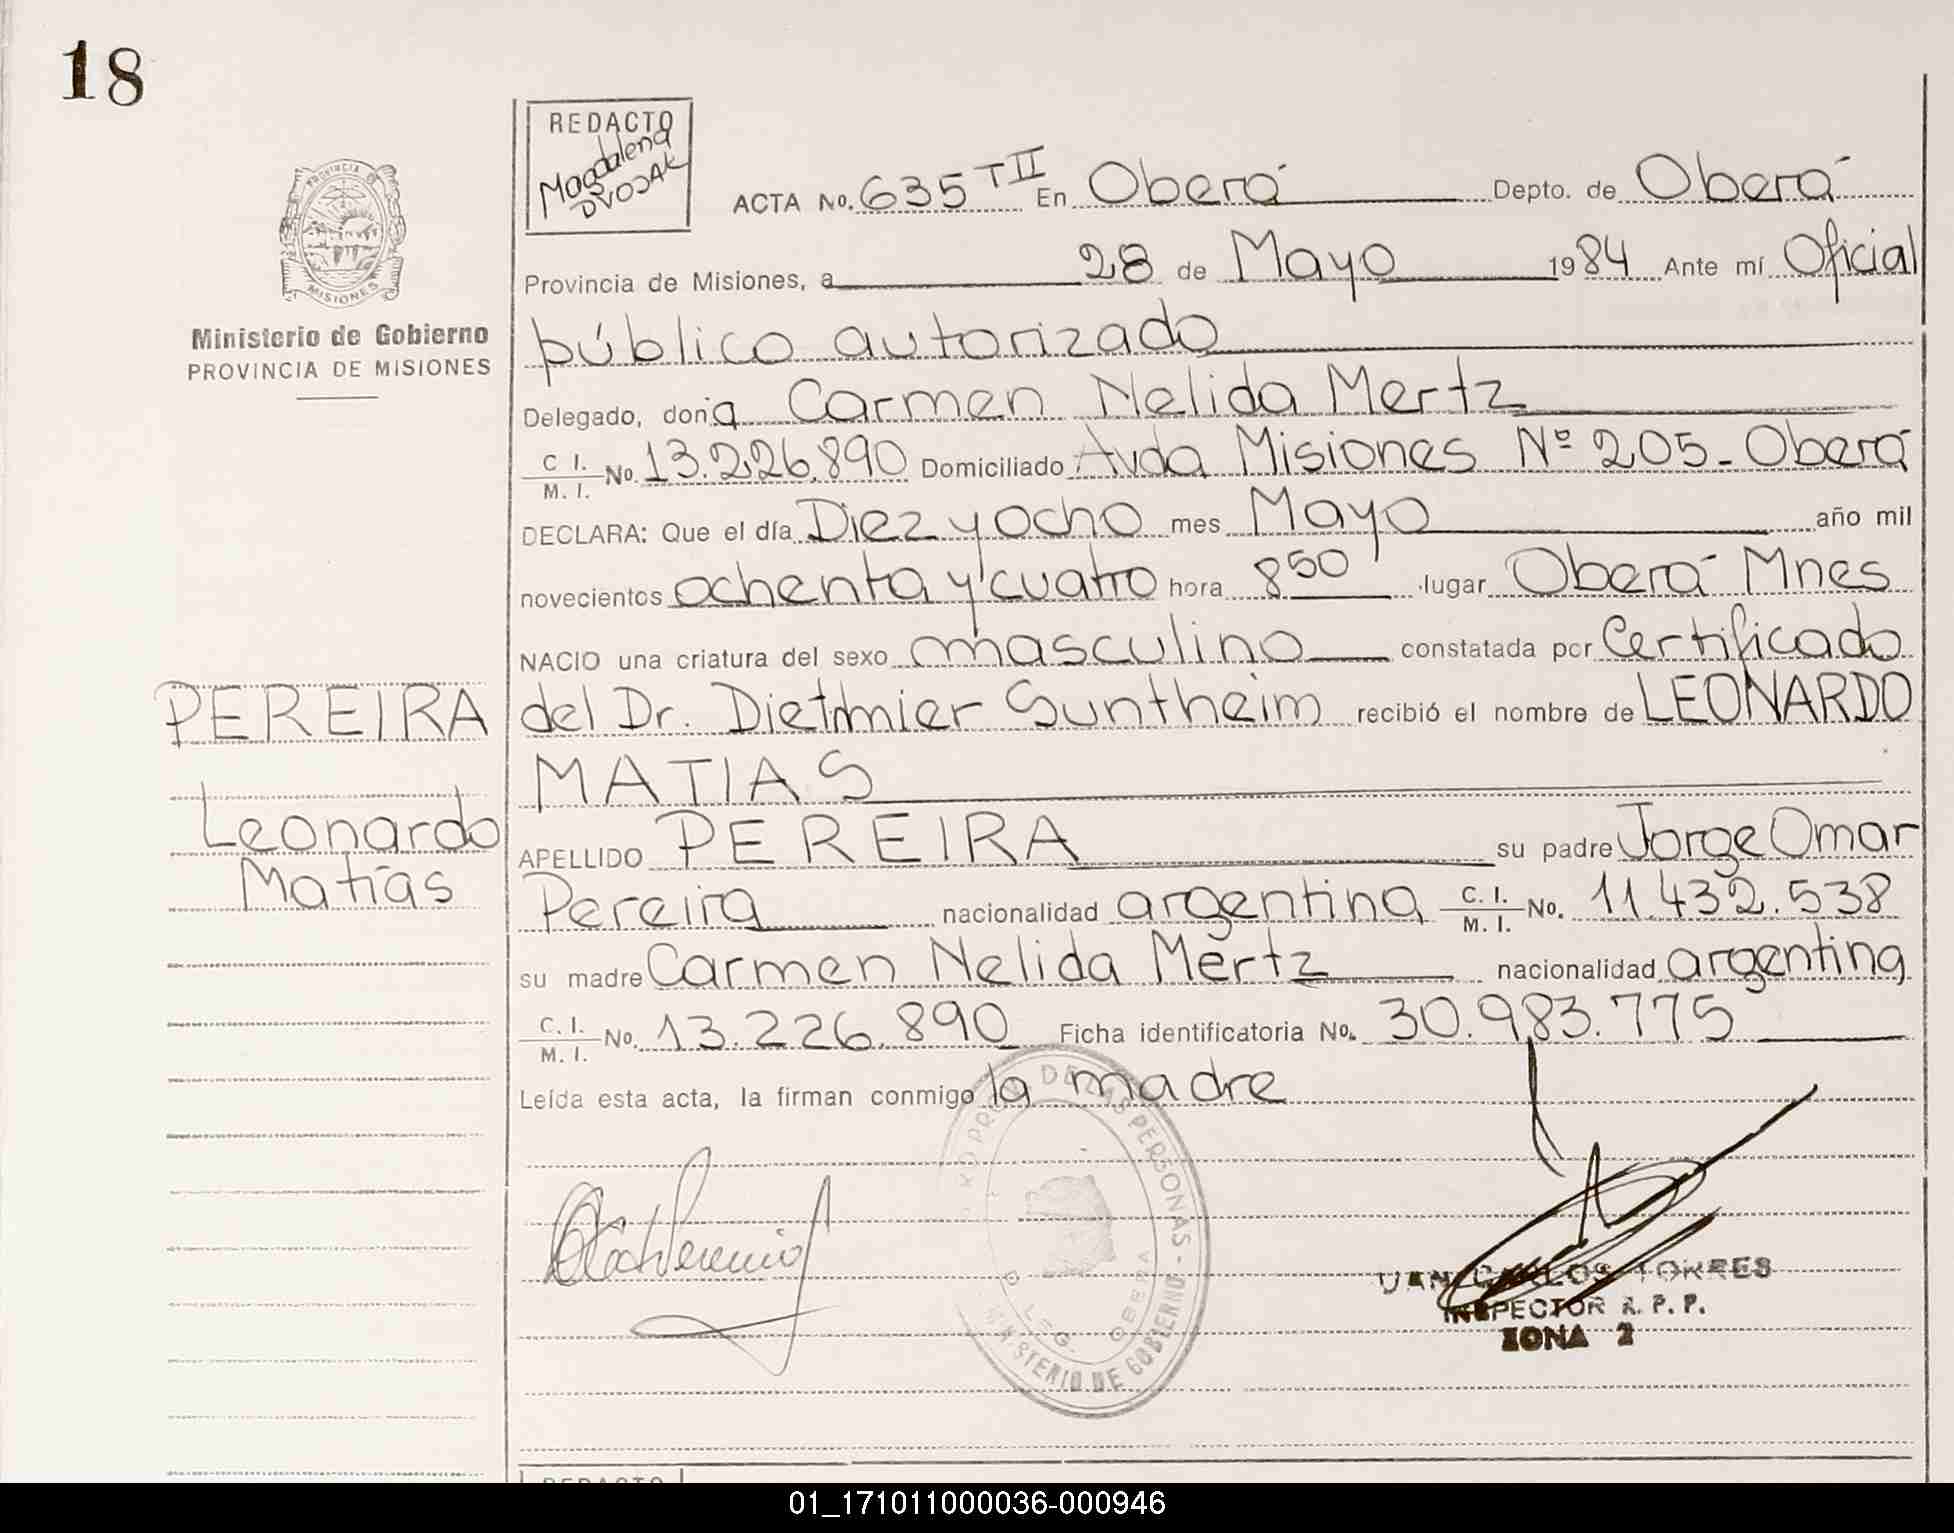 18
REDACTO
Magdalena
DVOJAK
PROVINCIA D
MISIONES
Ministerio de Gobierno
PROVINCIA DE MISIONES
ACTA No. 635 T II En Oberá Depto. de Oberá
Provincia de Misiones, a 28 de Mayo 1984 Ante mí Oficial
público autorizado
Delegado, doña Carmen Nelida Mertz
C I. / M. I. No. 13.226.890 Domiciliado Avda Misiones Nº 205 - Oberá
DECLARA: Que el día Diez y ocho mes Mayo año mil
novecientos ochenta y cuatro hora 8 50 lugar Oberá Mnes
NACIO una criatura del sexo masculino constatada por Certificado
PEREIRA
del Dr. Dietmier Suntheim recibió el nombre de LEONARDO
MATIAS
Leonardo
Matías
APELLIDO PEREIRA su padre Jorge Omar
Pereira nacionalidad argentina C. I. / M. I. No. 11.432.538
su madre Carmen Nelida Mertz nacionalidad argentina
C. I. / M. I. No. 13.226.890 Ficha identificatoria No. 30.983.775
Leída esta acta, la firman conmigo la madre
PROV. DE LAS PERSONAS - MINISTERIO DE GOBIERNO
OBERA
UAN CARLOS TORRES
INSPECTOR R. P. P.
ZONA 2
REDACTO
01_171011000036-000946